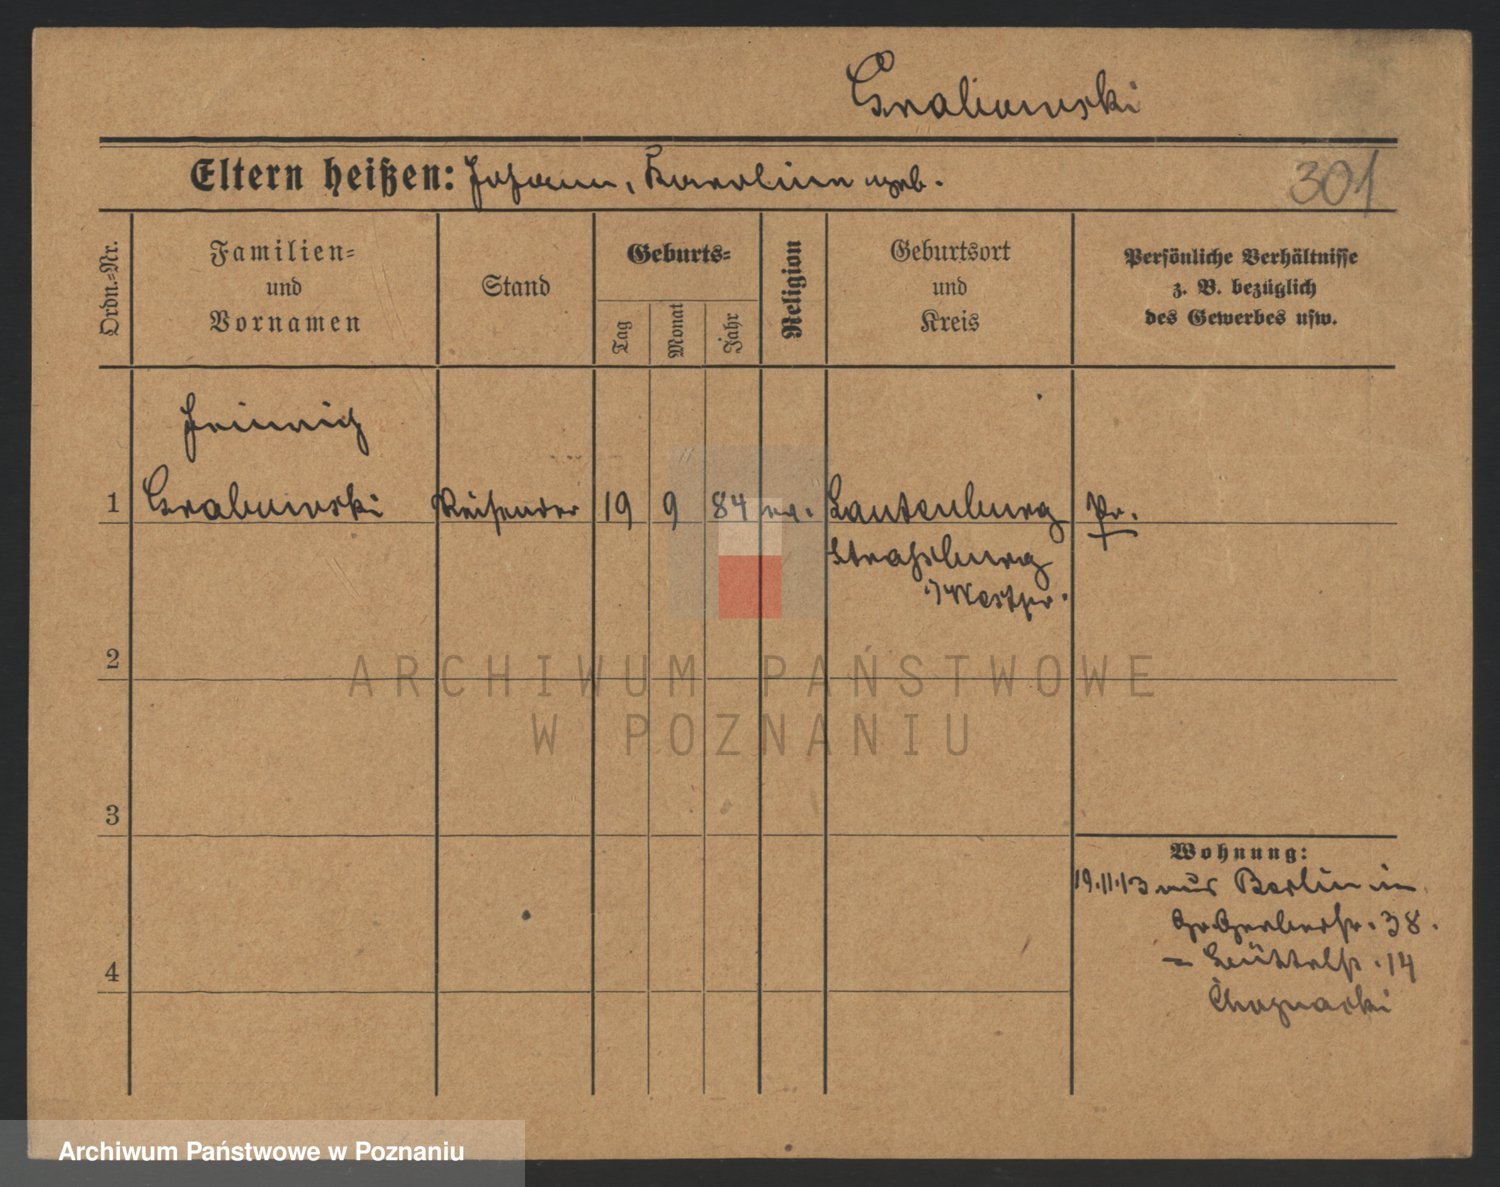 Grabowski
Eltern heißen: Johann, Karoline geb.
301
Ordn.-Nr.
Familien-
und
Vornamen
Stand
Geburts-
Tag
Monat
Jahr
Religion
Geburtsort
und
Kreis
Persönliche Verhältnisse
z. B. bezüglich
des Gewerbes usw.
Heinrich
1 Grabowski Reisender 19 9 84 ev. Lautenburg Pr.
Strasburg
i/Westpr.
2
ARCHIWUM PAŃSTWOWE
W POZNANIU
3
Wohnung:
19.11.13 aus Berlin in
Gr. Gerberstr. 38.
14
4
Archiwum Państwowe w Poznaniu